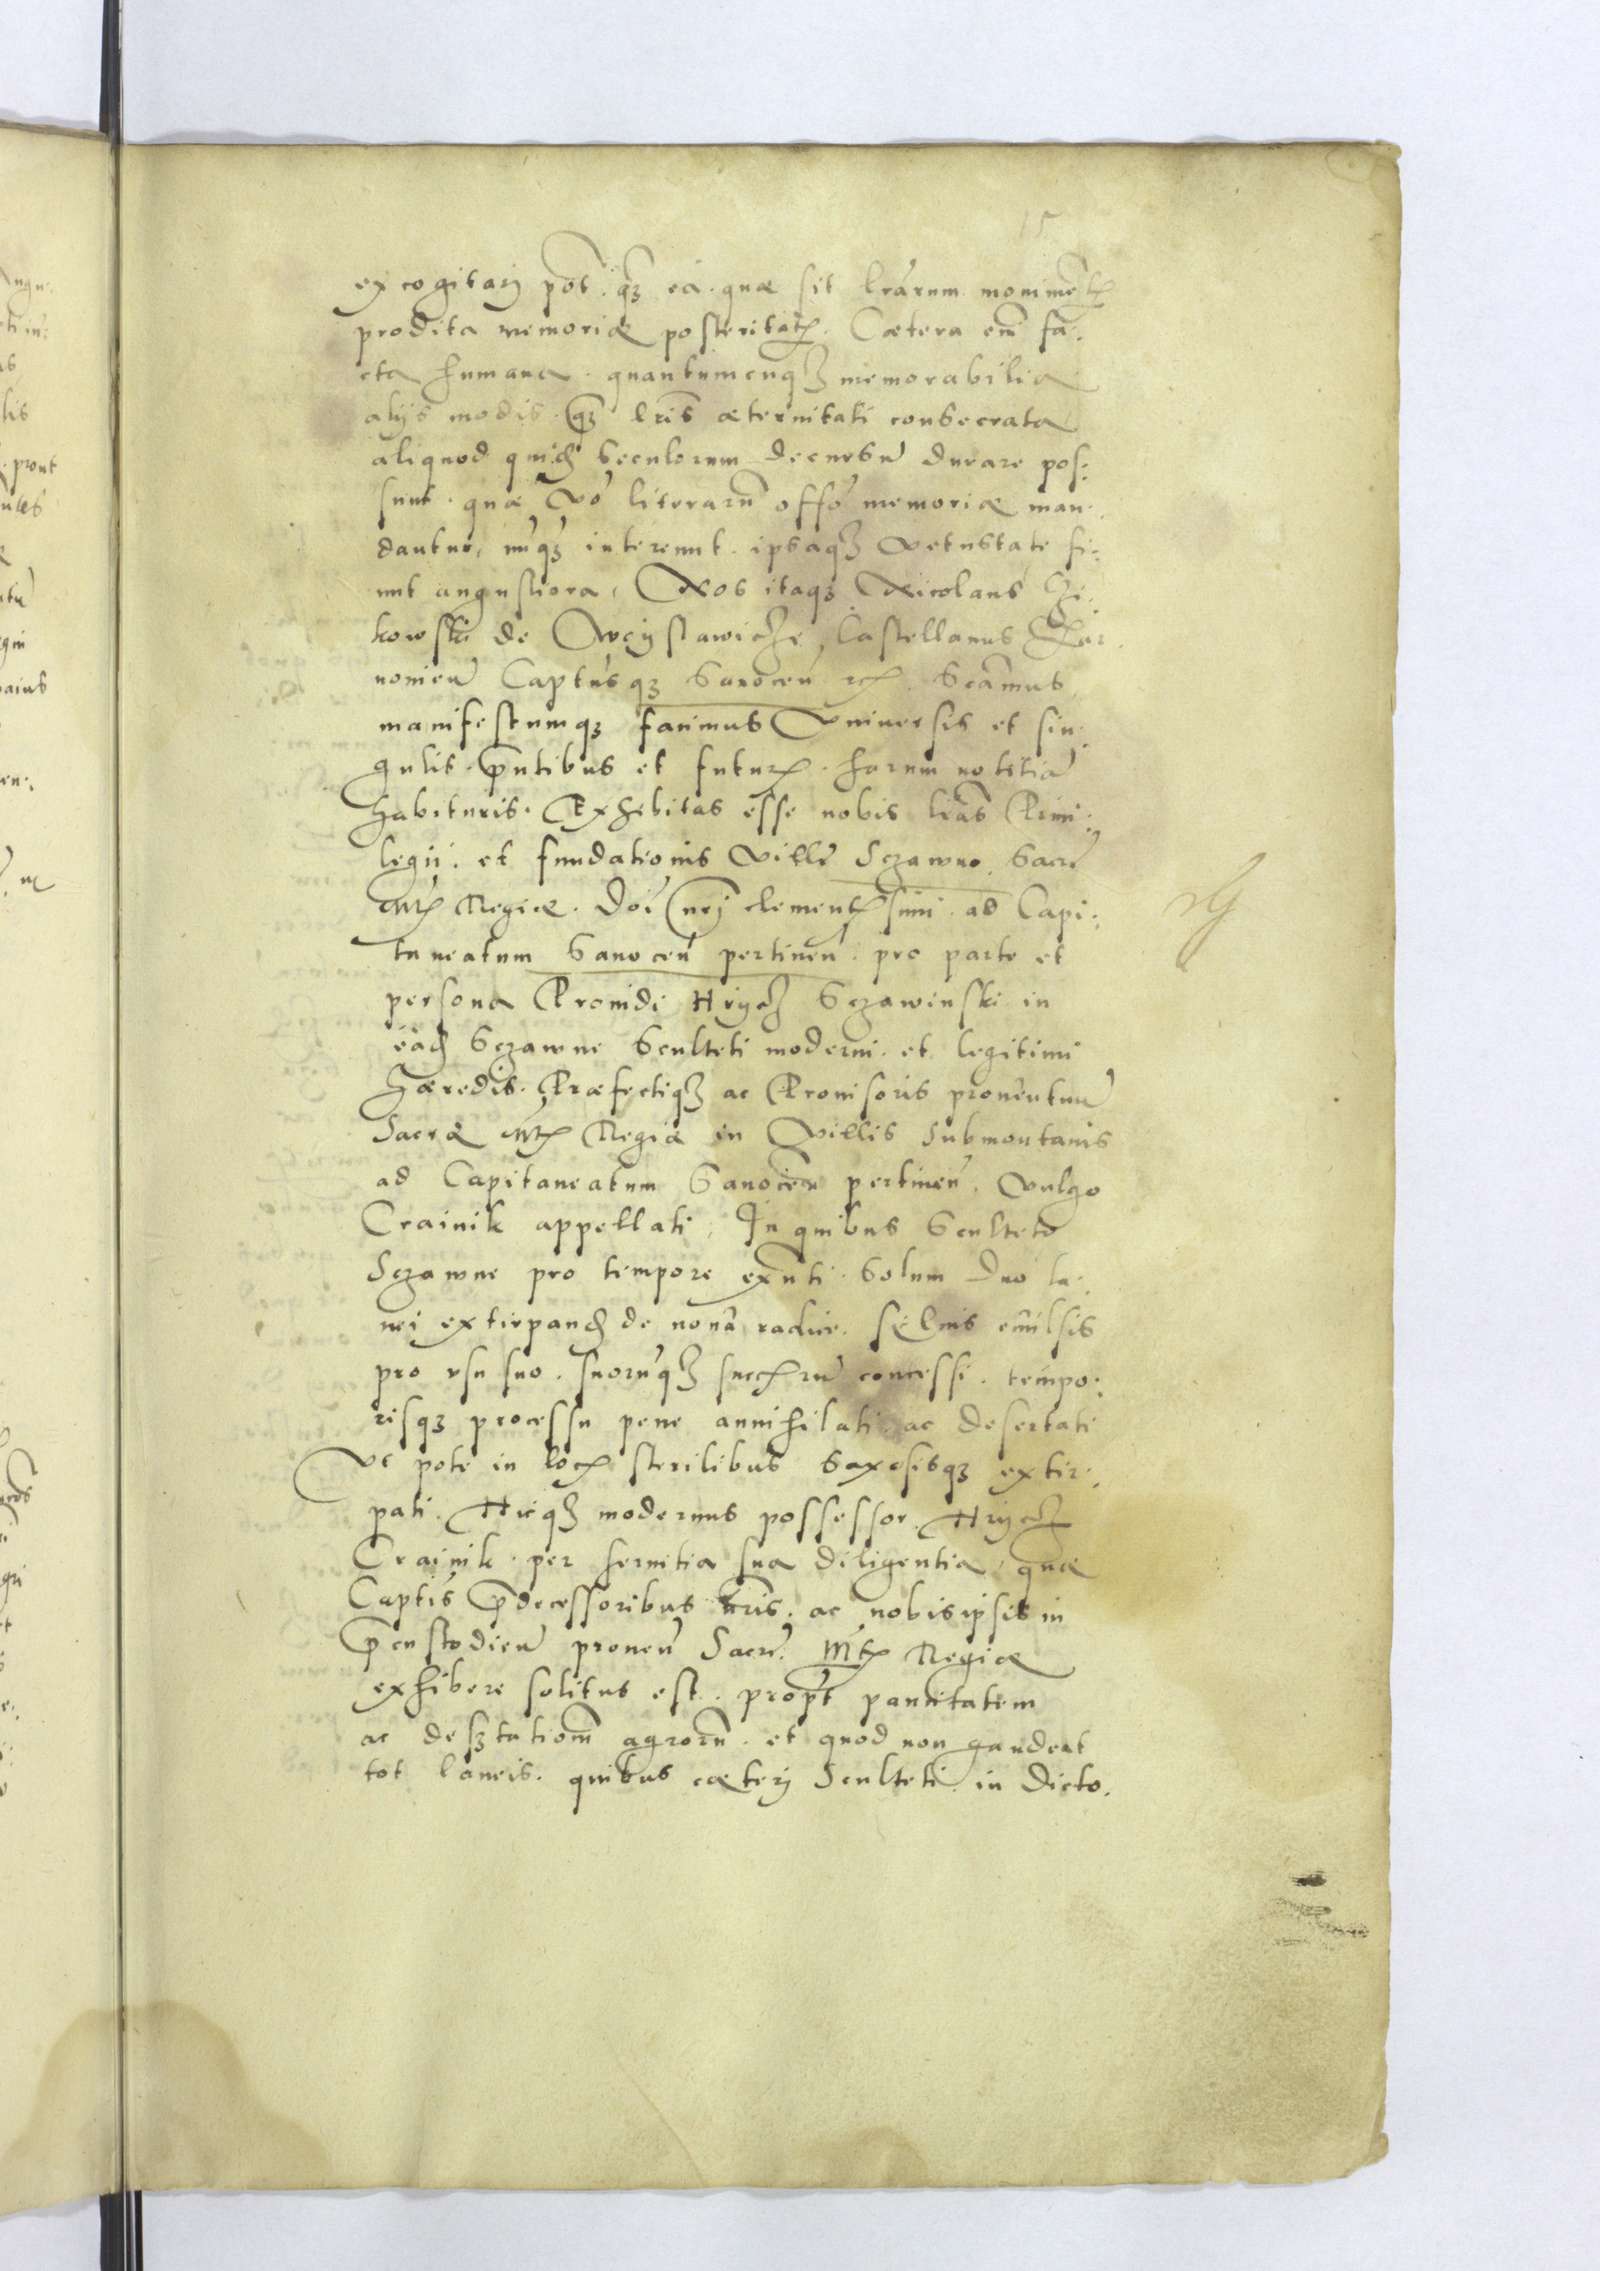 15
excogitarj pot. qz ea. quae sit lrarum monimẽt
prodita memoriae posteritat. Caetera em̃ fa.
cta humana. quantumcunqz memorabilia
alijs modis. qz lris aeternitati consecrata
aliquod quid seculorum decursu durare pos:
sunt. quae vo literarũ offo memoriae man.
dantur, nuqz intereunt. ipsaqz vetustate fi:
unt angustiora, Nos itaqz Nicolaus Czi.
kowski de Woijslawicze Castellanus Tar.
nomien Captusqz Sanocen etc. Scãmus
manifestumqz facimus Vniuersis et sin:
gulis. pñtibus et futur. harum notitia
habituris. Exhibitas esse nobis lras Priui:
legij. et fundationis Ville Sczawne. Sacre
Mt Regiae. Doi nrj clementssimi. ad Capi:
taneatum Sanocen pertinen. pro parte et
persona Prouidi Hrycz Sczawinski in
ead Sczawne Sculteti moderni. et legitimi
Haeredis. Praefectiqz ac Prouisoris prouentuu
Sacrae Mt Regiae in Villis submontanis
ad Capitaneatum Sanocen pertinen. Vulgo
Crainik appellati. In quibus Sculteto
Sczawne pro tempore exñti. Solum duo la.
nei extirpand de noua radice. Seluis euulsis
pro vsu suo. suoruqz succrũ concessi. tempo:
risqz processu pene annihilati. ac desertati
Vt pote in loc sterilibus saxosisqz extir.
pati. Hicqz modernus possessor Hrycz
Crainik. per seruitia sua diligentia. quae
Captis pdecessoribus nris. ac nobisipsis in
pcustodien prouen Sacre. Mt Regiae
exhibere solitus est. propt paucitatem
ac desztationẽ agrorũ. et quod non gaudeat
tot laneis. quibus caeterj Sculteti in dicto.